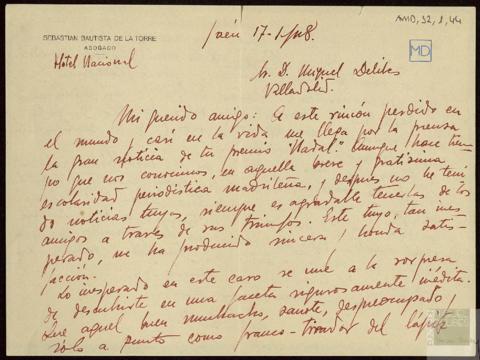 AMD, 32, 1, 44
SEBASTIAN BAUTISTA DE LA TORRE
ABOGADO
Hotel Nacional
Jaén 17-1-48.
MD
Sr. D. Miguel Delibes
Valladolid.
Mi querido amigo: A este rincón perdido en
el mundo y casi en la vida me llega por la prensa
la gran noticia de tu premio "Nadal". Aunque hace tiem-
po que nos conocimos, en aquella breve y gratísima
escolaridad periodística madrileña, y después no he teni-
do noticias tuyas, siempre es agradable tenerlas de los
amigos a través de sus triunfos. Este tuyo, tan ines-
perado, me ha producido sincera y honda satis-
facción.
Lo inesperado en este caso se une a la sorpresa
de descubrirte en una faceta rigurosamente inédita.
Que aquel buen muchacho, sanote, despreocupado,
sólo a punto como franco-tirador del lápiz